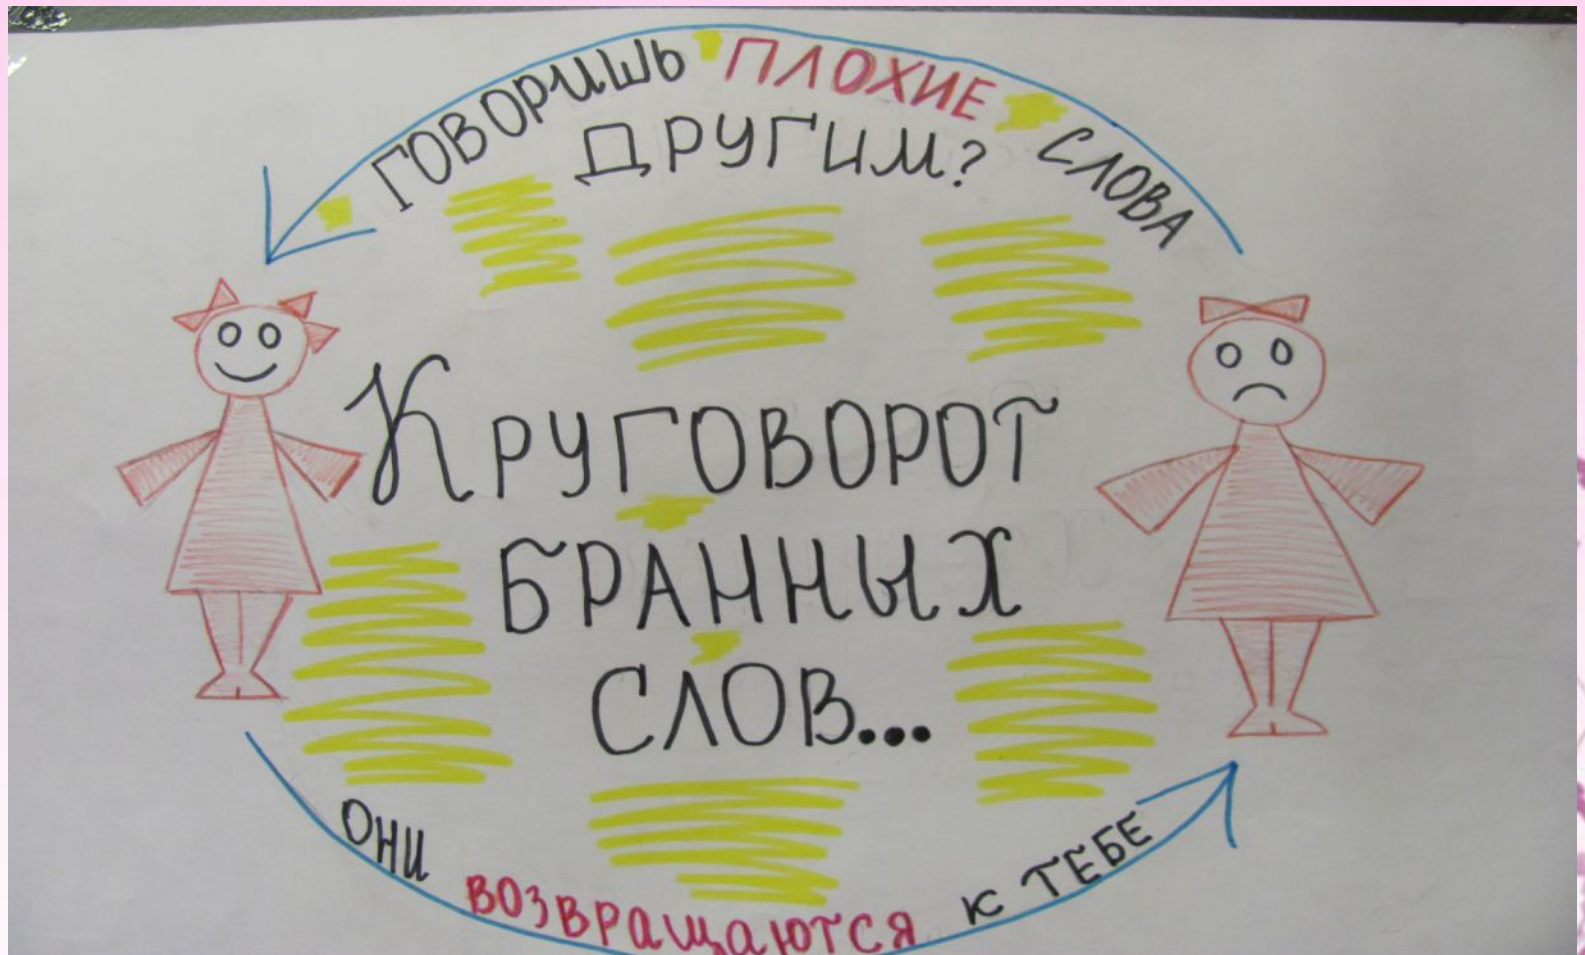 ГОВОРИШЬ ПЛОХИЕ СЛОВА
ДРУГИМ?
КРУГОВОРОТ
БРАННЫХ
СЛОВ...
ОНИ ВОЗВРАЩАЮТСЯ К ТЕБЕ